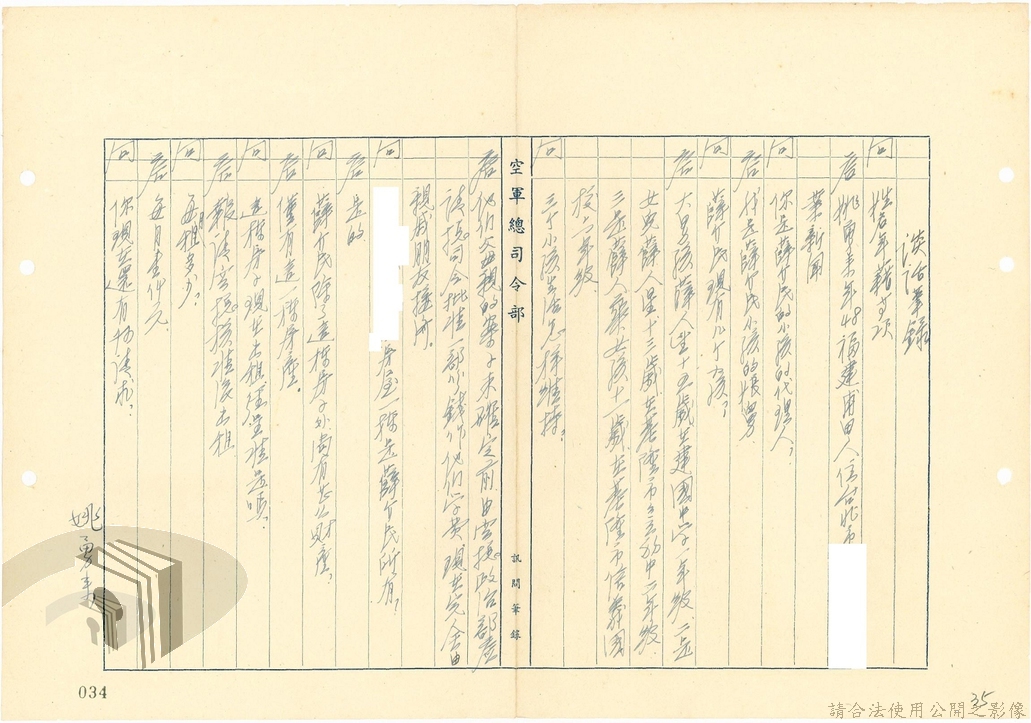 談話筆錄
問 姓名年籍等項
答 姚勇來年48福建莆田人住台北市
業新聞
問 你是薛介民的小孩的代理人?
答 我是薛介民小孩的娘舅
問 薛介民現有幾個小孩?
答 大男孩薛人 十五歲在建國中學一年級二是
女兒薛人 十三歲在基隆市立 中一年級
三是薛人 女孩十一歲在基隆市信義國
校六年級
問 三個小孩生活怎樣維持?
空軍總司令部
訊問筆錄
答 他們父母親的案子未確定前由 總政治部
請總司令批准一部份錢作他們學費現在完全由
親戚朋友接濟。
問 房屋一棟是薛介民所有?
答 是的
問 薛介民除了這棟房子外尚有其他財產?
答 僅有這一棟房產。
問 這棟房子現在出租 是嗎?
答 報請 核准後出租
問 每月租多少?
答 每月壹仟元
問 你現在還有何請求?
姚勇來
034
35
請合法使用公開之影像